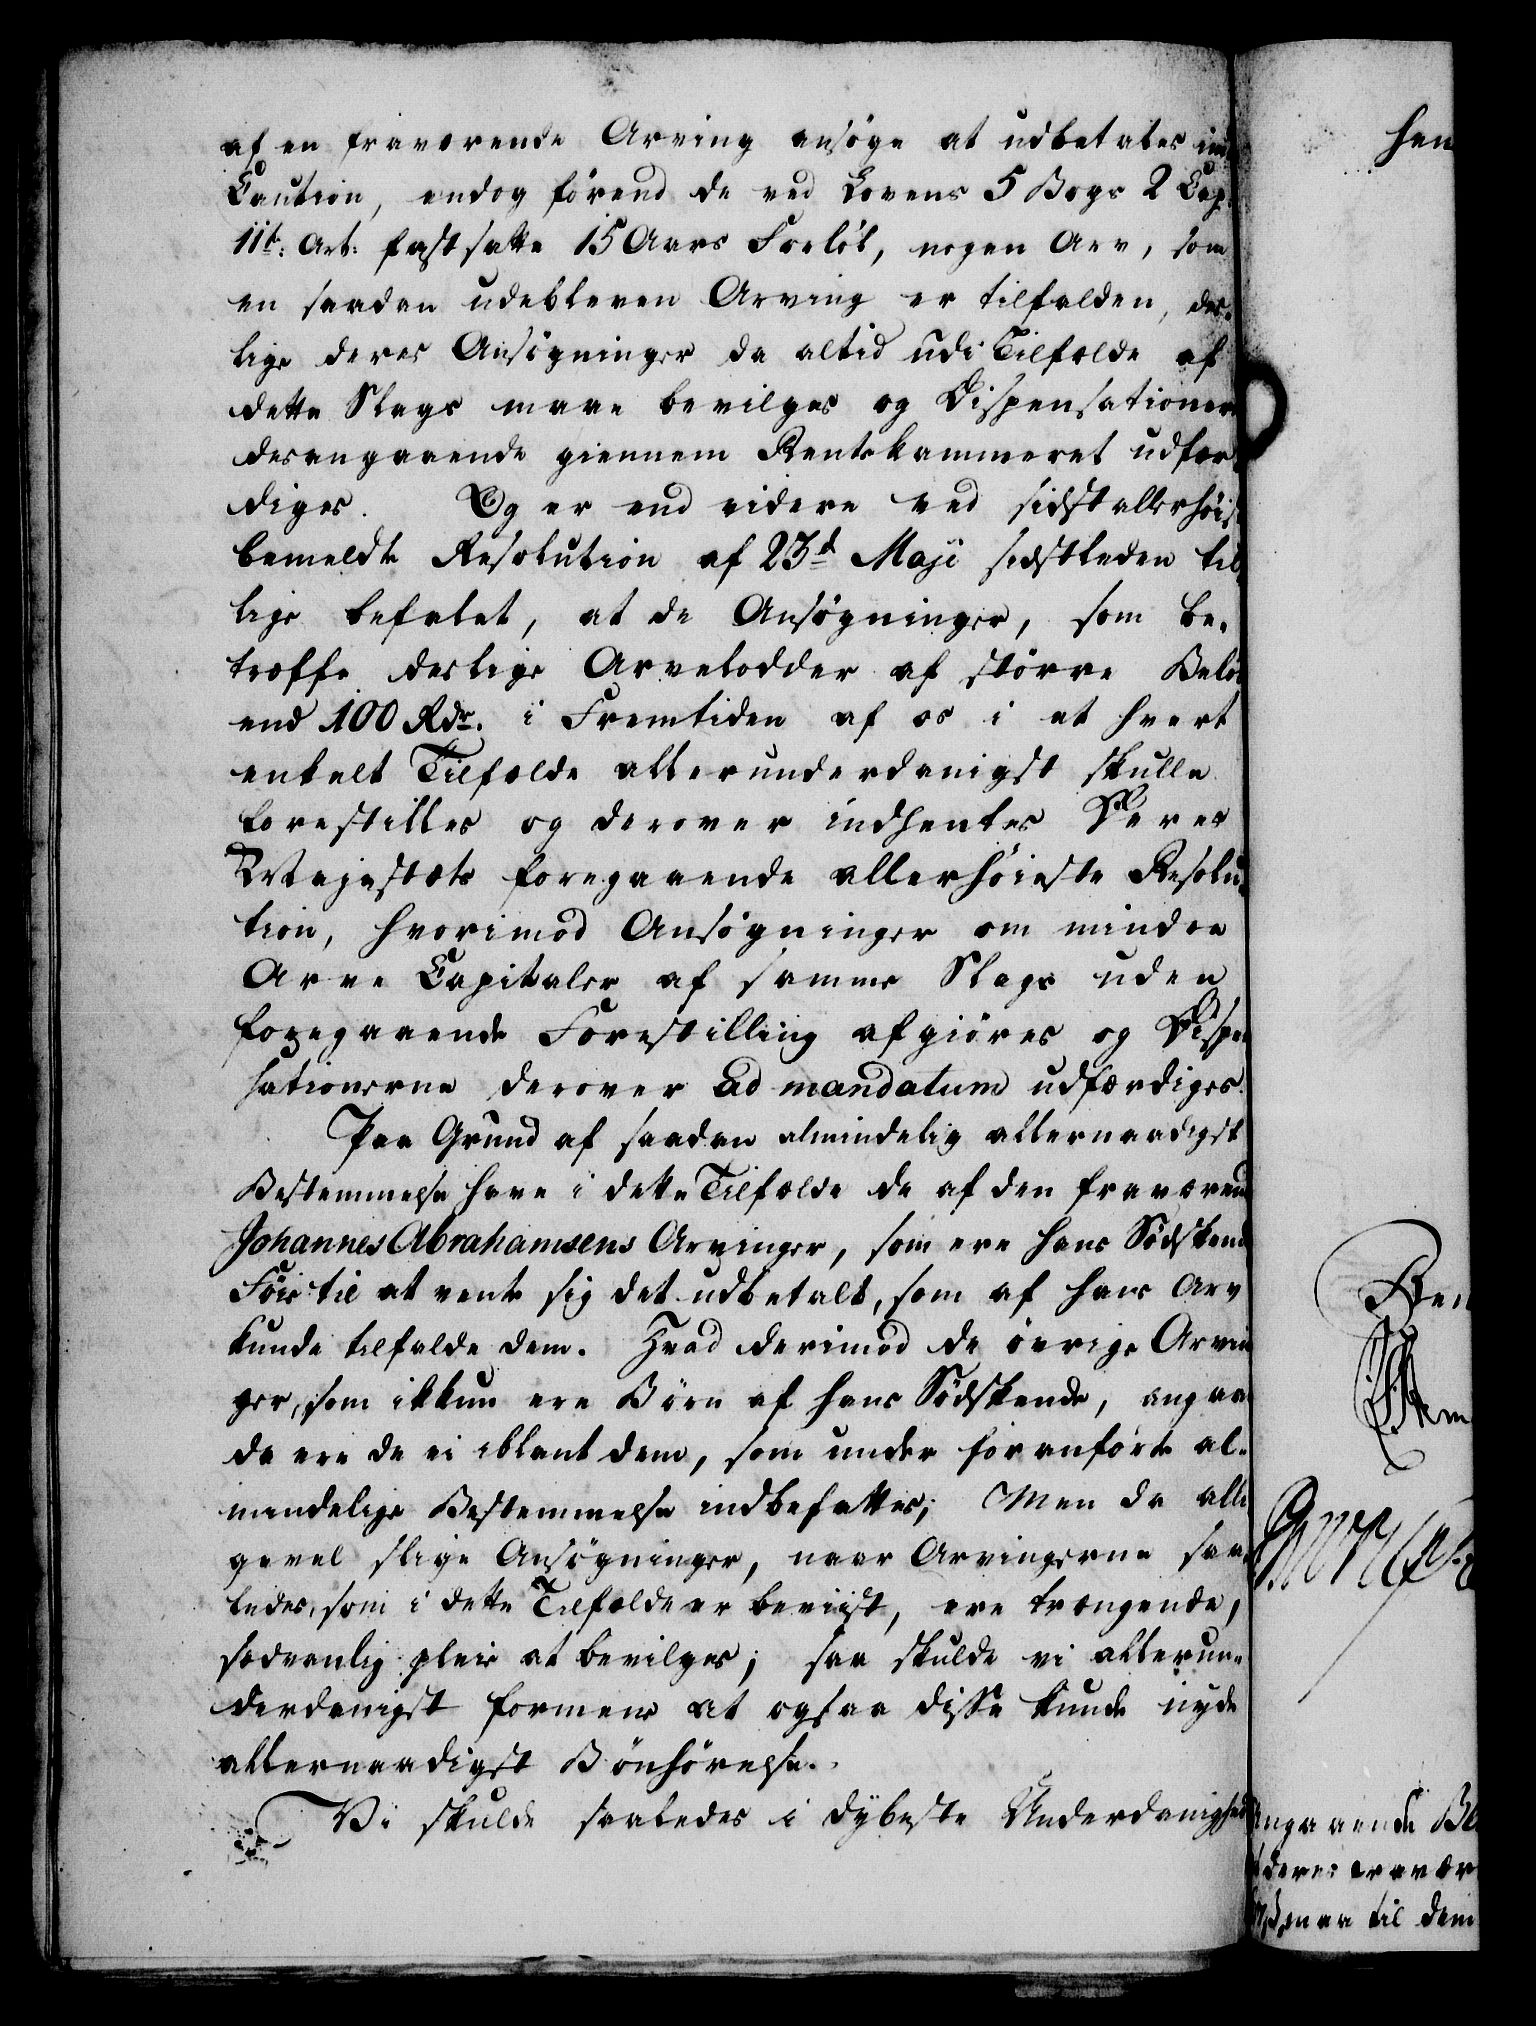 af en fraværende Arving ansøge at udbetales imod
Caution, endog förend de ved Lovens 5 Bogs 2 Cap:
11t: Art: fastsatte 15 Aars Forløb, nogen Arv, som
en saadan udebleven Arving er tilfalden, des-
lige deres Ansögninger da altid udi Tilfælde af
dette Slags maae bevilges og Dispensationer
desangaaende giennem Rentekammeret udfær-
diges. Og er end videre ved sidst allerhöist
bemeldte Resolution af 23d Maji sidstleden til-
lige befalet, at de Ansögninger, som be-
træffe deslige Arvelodder af större Belöb
end 100 Rdr. i Fremtiden af os i et hvert
enkelt Tilfælde allerunderdanigst skulle
forestilles og derover indhentes Deres
Majestæts foregaaende allerhöieste Resolu-
tion, hvorimod Ansögninger om mindre
Arve Capitaler af samme Slags uden
foregaaende Forestilling afgiöres og Dispen
sationerne derover ad mandatum udfærdiges.
Paa Grund af saadan almindelig allernaadigst
Bestemmelse have i dette Tilfælde de af den fraværende
Johannes Abrahamsens Arvinger, som ere hans Södskende
Föie til at vente sig det udbetalt, som af hans Arv
kunde tilfalde dem. Hvad derimod de övrige Arvin
ger, som ikkun ere Börn af hans Södskende, angaae
da ere de ei iblant dem, som under foranförte al-
mindelige Bestemmelse indbefattes; Men da alli
gevel slige Ansögninger, naar Arvingerne saa-
ledes, som i dette Tilfælde er beviist, ere trængende,
sædvanlig pleie at bevilges; saa skulde vi allerun-
derdanigst formene at ogsaa disse kunde nyde
allernaadigst Bönhörelse.
Vi skulde saaledes i dybeste Underdanighed
hen
angaaende
deres
til dem